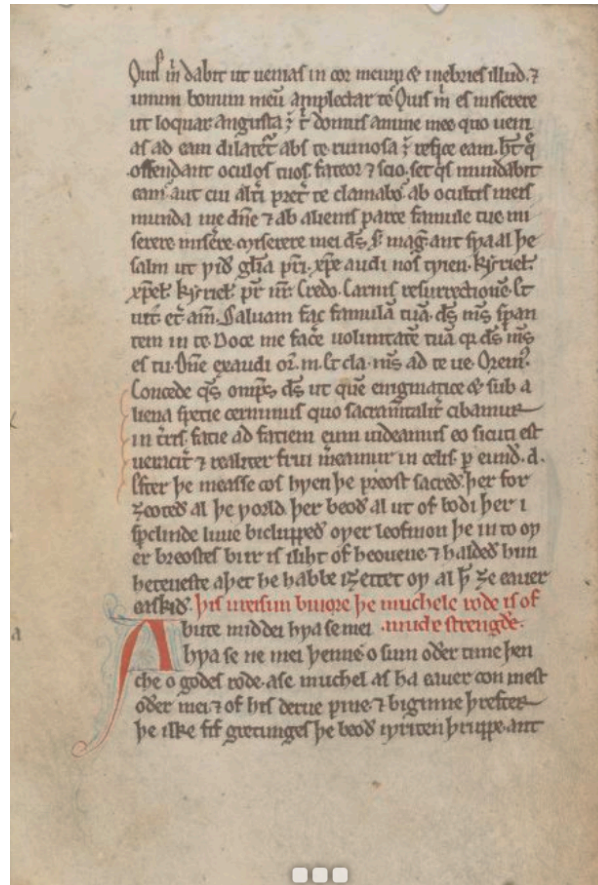 Quis m̄ dabit ut uenias in cor meum & inebries illud. ⁊
unum bonum meū amplectar te Quis m̄ es miserere
ut loquar angusta ÷ t̄ domus anime mee quo ueni
as ad eam dilatet̄ abs te ruinosa ÷ refice eam. h̄t q̄
offendant oculos tuos fateor ⁊ scio. set q̄s mundabit
eam aut cui alt̄i pret̄ te clamabo ab occultis meis
munda me dn̄e ⁊ ab alienis parce famule tue mi
serere miserere. Miserere mei ds̄. s̄. mag. ant sƿa al þe
salm ut ƿið gl̄ia pr̄i. xp̄e audi nos kyrieɫ.
xp̄eɫ. kyrieɫ. pr̄ nr̄. Credo. Carnis resurrectionē. Et
uit̄ et̄. am̄. Saluam fac famulā tuā. ds̄ ms̄ sꝑan
tem in te. Doce me facē uoluntatē tuā qr̄ ds̄ ms̄
es tu. Dn̄e exaudi or̄. m. Et cla. ms̄ ad te ue. Orem̄.
Concede qs̄ omp̄s. ds̄ ut que enigmatice & sub a
liena specie cernimus quo sacram̄talit̄ cibamur
in t̄ris. facie ad faciem eum uideamus eo sicuti est
ueracit̄ ⁊ realiter frui m̄eamur in celis. ꝑ eund̄. d.
Efter þe measse cos hƿen þe preost sacreð. þer for
ȝeoteð al þe ƿorld. þer beoð al ut of bodi þer i
sperlinde luue bicluppeð oƿer leofmon þe in to oƿ
er breostes bur is iliht of heouene. ⁊ haldeð him
heteueste aþet he habbe iȝettet oƿ al þ̄ ȝe eauer
easkið. þis ureisun biuore þe muchele rode is of
bute middei hƿa se mei. .muche strengðe.
Ahƿa se ne mei þenne o sum oðer time þen
che o godes rode. ase muchel as ha eauer con mest
oðer mei. ⁊ of his derue pine. ⁊ biginne þrefter
þe ilke fif gretunges þe beoð iƿriten þruppe. ant